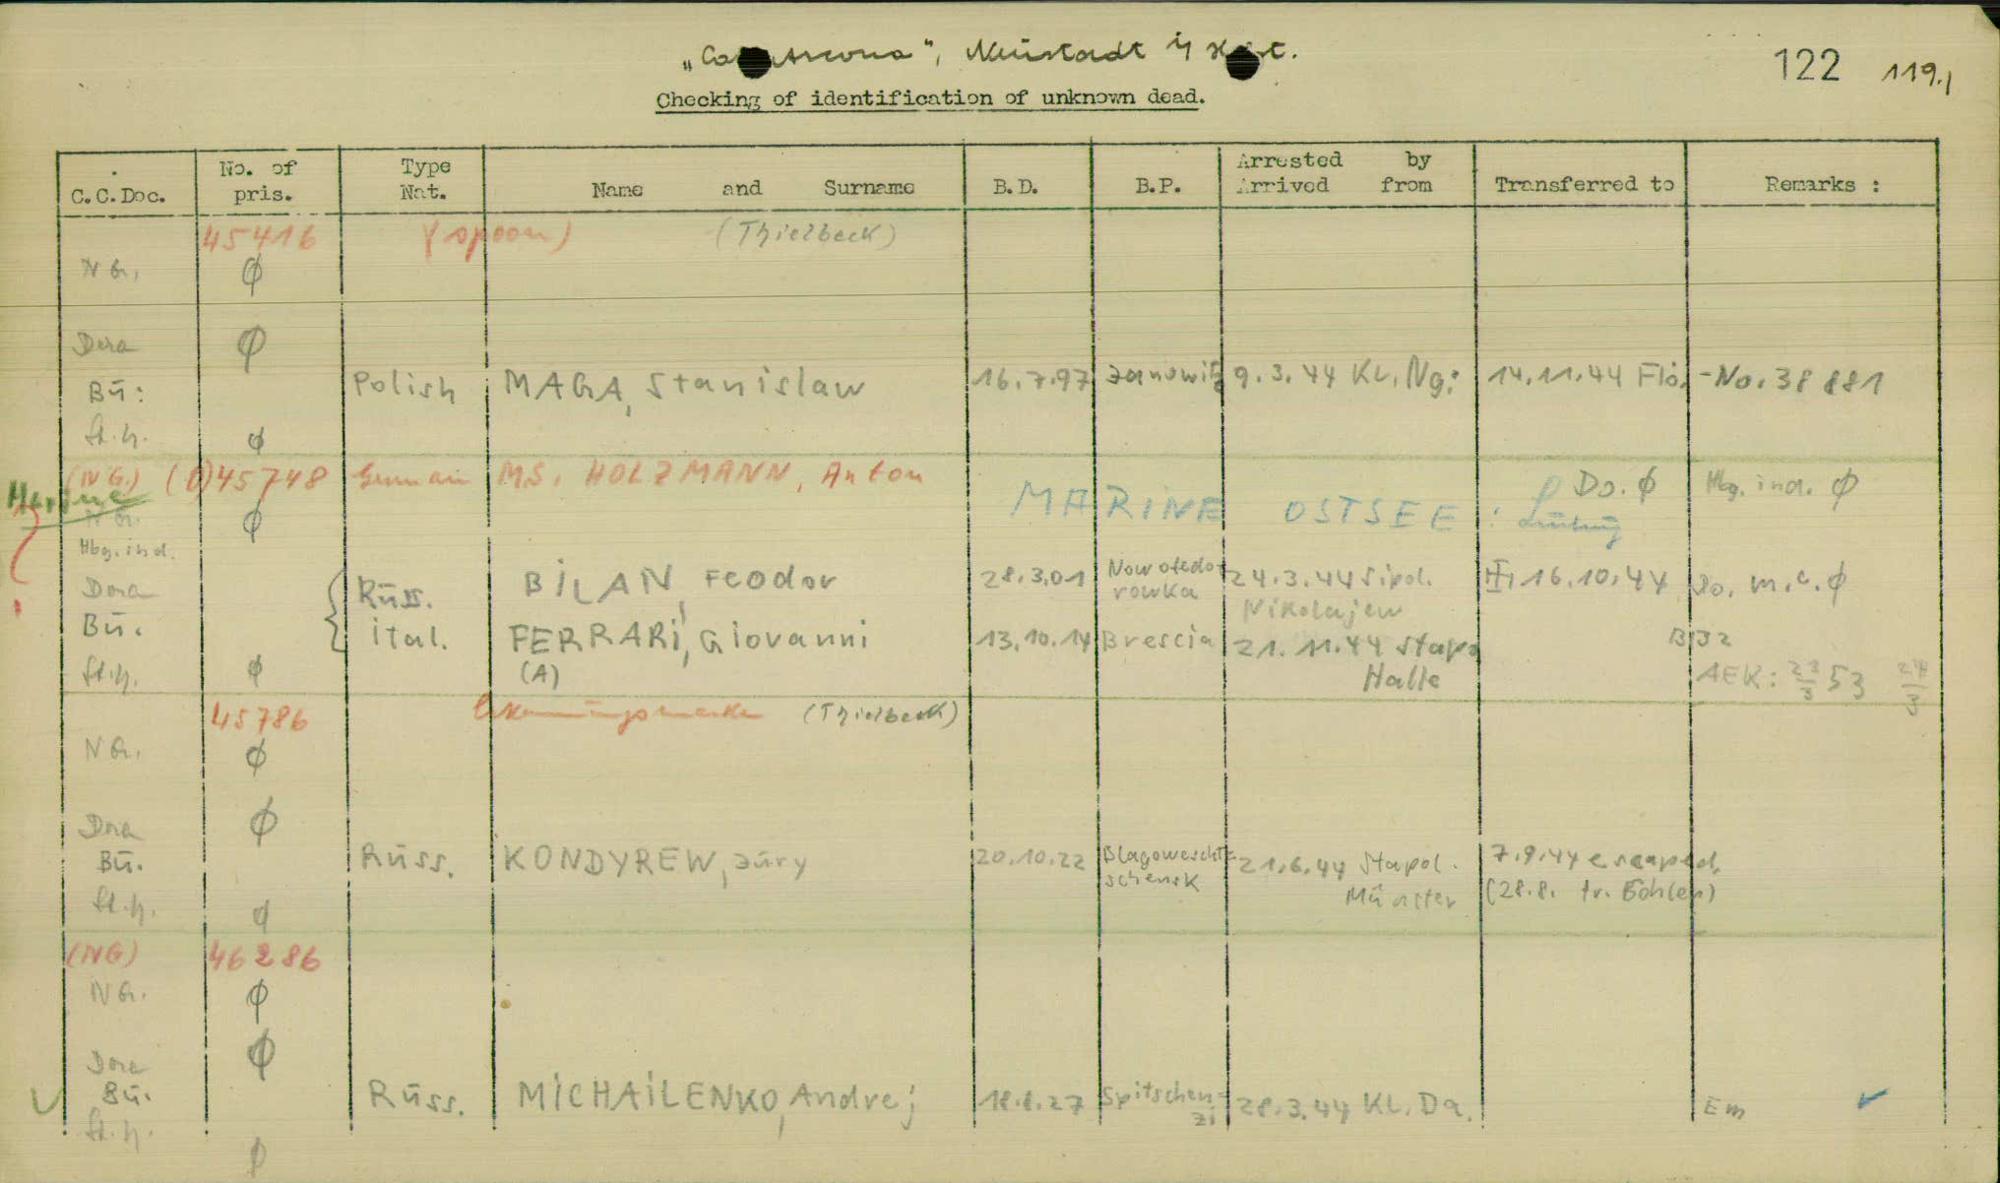 „Cap Arcona", Neustadt i/ Holst.
122 119.)
Checking of identification of unknown dead.
C.C.Doc. No. of pris. Type Nat. Name and Surname B.D. B.P. Arrested by Arrived from Transferred to Remarks :
45416 (spoon) (Thielbeck)
NG. ø
Dora ø
Bü: Polish MAGA, Stanislaw 16.7.97 Janowitz 9.3.44 KL.Ng: 14.11.44 Flo. -No. 38 881
St.h. ø
(NG.) (D) 45748 German MS. HOLZMANN, Anton Do. ø Hbg. ind. ø
Marine
NG. ø MARINE OSTSEE : Lübeck
Hbg. ind.
Dora Russ. BILAN, Feodor 28.3.01 Nowofedorowka 24.3.44 Sipol. Nikolajew III, 16.10.44 Do. m.c. ø
Bü. Ital. FERRARI, Giovanni 13.10.14 Brescia 21.11.44 Stapo Halle B 132
St.h. ø (A) AEK: 23/3 53 24/3
45786 Erkennungsmarke (Thielbeck)
NG. ø
Dora ø
Bü. Russ. KONDYREW, Jury 20.10.22 Blagoweschtschensk 21.6.44 Stapol. Münster 7.9.44 escaped, (28.8. tr. Böhlen)
St.h. ø
(NG) 46286
NG. ø
Dora ø
Bü. Russ. MICHAILENKO, Andrej 18.8.27 Spitschenzi 28.3.44 KL.Da. Em
St.h. ø